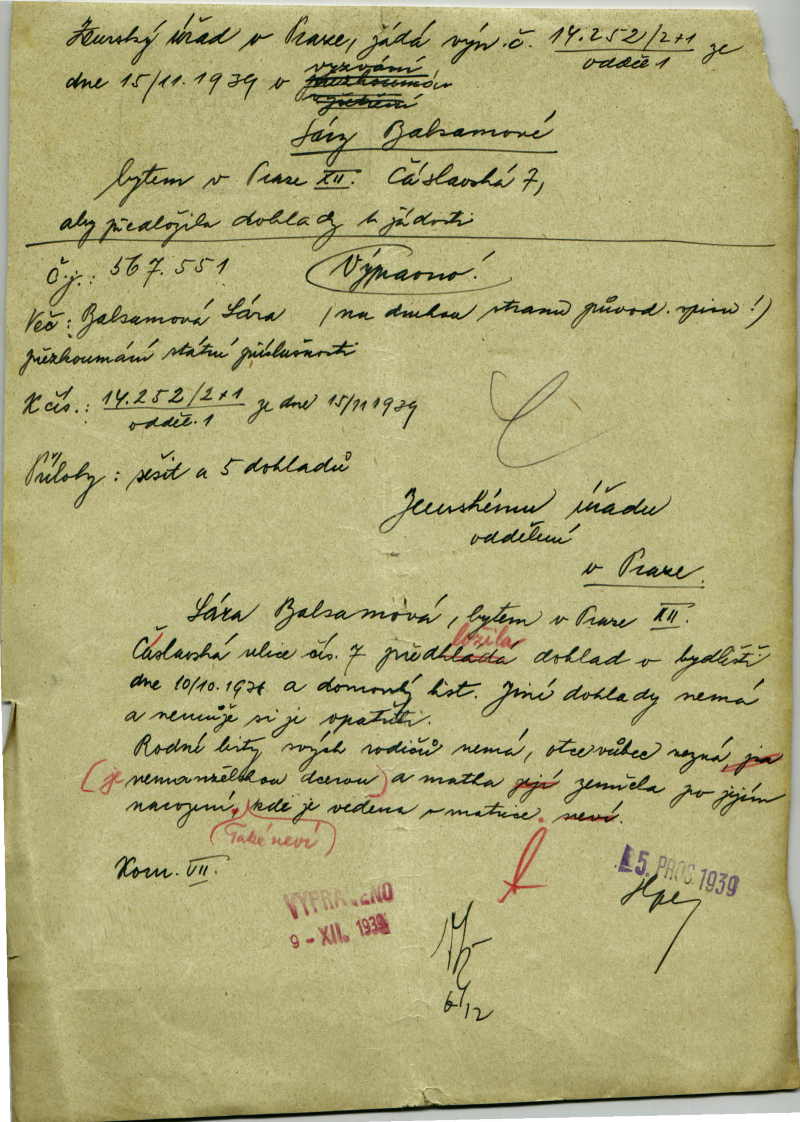 Zemský úřad v Praze, žádá výn. č. 14.252/2+1 ze
odděl. 1
dne 15/11.1939 o vyzvání
Sáry Balsamové
bytem v Praze XII. Čáslavská 7,
aby předložila doklady k žádosti
Č.j.: 567.551 Výpravno!
Věc: Balsamová Sára (na druhou stranu původ. spisu!)
přezkoumání státní příslušnosti
K čís.: 14.252/2+1 ze dne 15/11 1939
odděl. 1
Přílohy: sešit a 5 dokladů
Zemskému úřadu
oddělení
v Praze.
Sára Balsamová, bytem v Praze XII.
Čáslavská ulice čís. 7 předložila doklad o bydlišti
dne 10/10.1936 a domovský list. Jiné doklady nemá
a nemůže si je opatřiti.
Rodné listy svých rodičů nemá, otce vůbec nezná,
(je nemanželskou dcerou) a matka její zemřela po jejím
narození, kde je vedena v matrice neví.
(Také neví)
Kom. VII.
VYPRAVENO
9 - XII. 1939
5. PROS. 1939
6/12